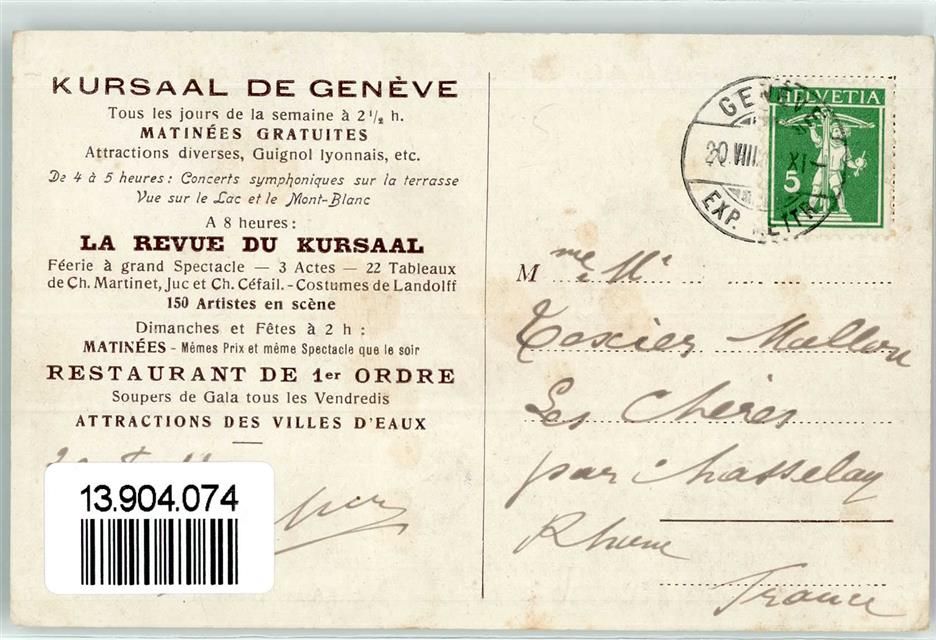 KURSAAL DE GENÈVE
Tous les jours de la semaine à 2 1/2 h.
MATINÉES GRATUITES
Attractions diverses, Guignol lyonnais, etc.
De 4 à 5 heures: Concerts symphoniques sur la terrasse
Vue sur le Lac et le Mont-Blanc
A 8 heures:
LA REVUE DU KURSAAL
Féerie à grand Spectacle — 3 Actes — 22 Tableaux
de Ch. Martinet, Juc et Ch. Céfail. - Costumes de Landolff
150 Artistes en scène
Dimanches et Fêtes à 2 h:
MATINÉES - Mêmes Prix et même Spectacle que le soir
RESTAURANT DE 1er ORDRE
Soupers de Gala tous les Vendredis
ATTRACTIONS DES VILLES D'EAUX
13.904.074
GENÈVE
20 VIII XI
EXP. LETTR.
HELVETIA
5
Mme
Texier Mallon
Les Chères
par Chasselay
Rhône
France